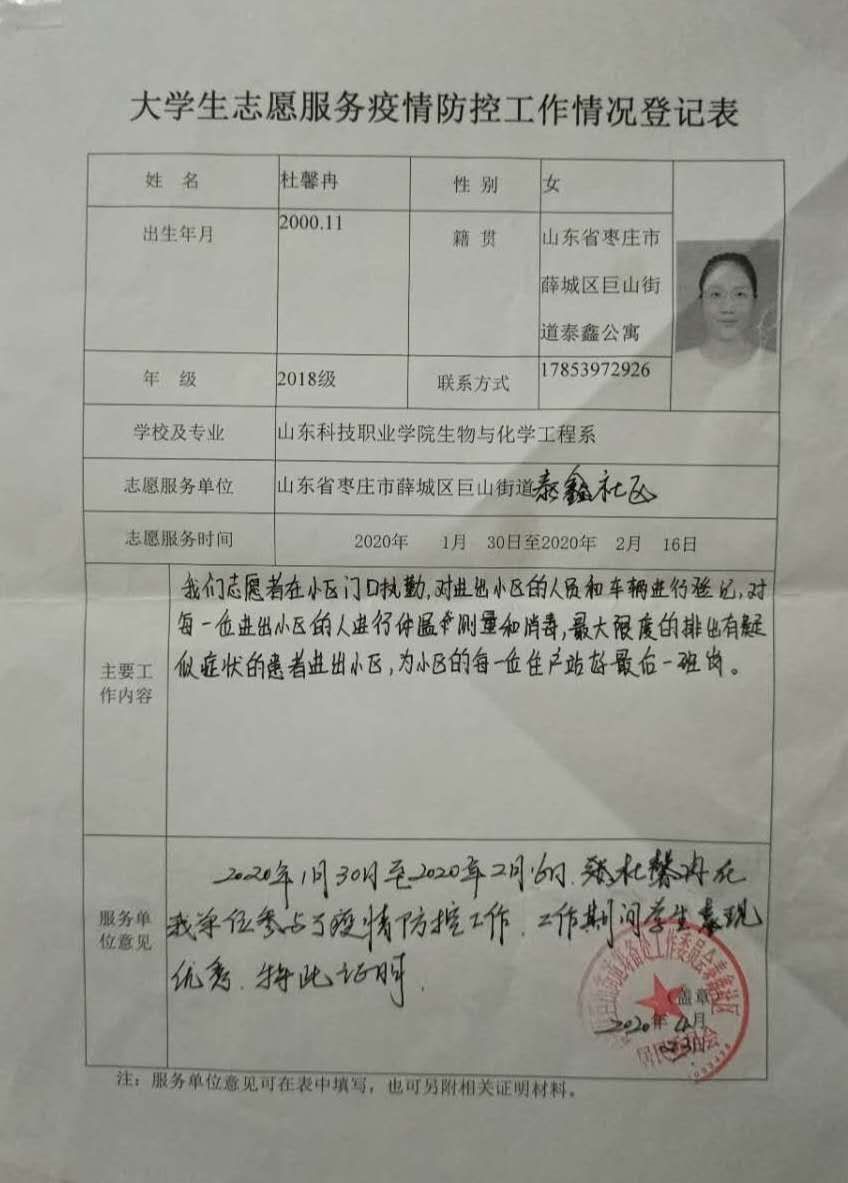 大学生志愿服务疫情防控工作情况登记表
姓 名 杜馨冉 性 别 女
出生年月 2000.11 籍 贯 山东省枣庄市
薛城区巨山街
道泰鑫公寓
年 级 2018级 联系方式 17853972926
学校及专业 山东科技职业学院生物与化学工程系
志愿服务单位 山东省枣庄市薛城区巨山街道泰鑫社区
志愿服务时间 2020年 1月 30日至2020年 2月 16日
主要工
作内容
我们志愿者在小区门口执勤,对进出小区的人员和车辆进行登记,对
每一位进出小区的人进行体温测量和消毒,最大限度的排出有疑
似症状的患者进出小区,为小区的每一位住户站好最后一班岗。
服务单
位意见
2020年1月30日至2020年2月16日,杜馨冉在
我单位参与了疫情防控工作,工作期间学生表现
优秀,特此证明.
(盖章)
2020年4月
注：服务单位意见可在表中填写，也可另附相关证明材料。